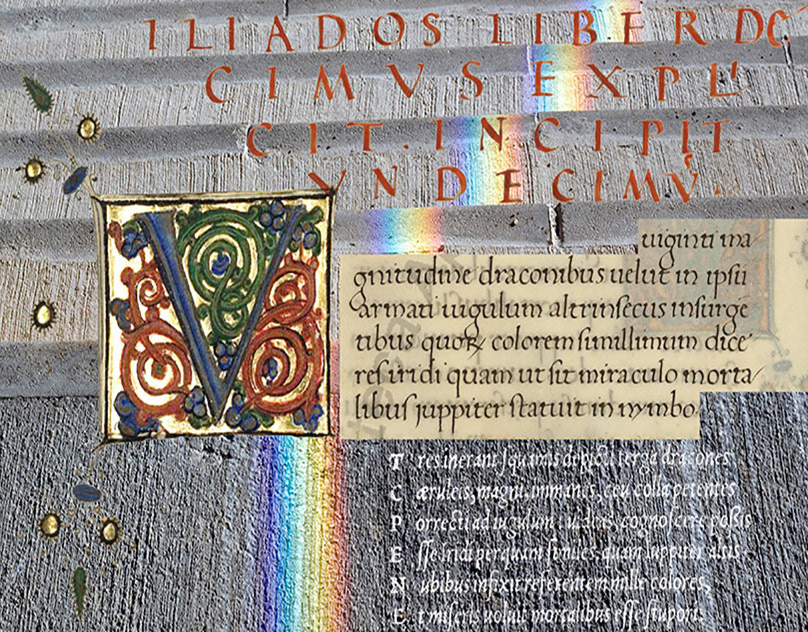 ILIADOS LIBER DE
CIMVS EXPLI
CIT. INCIPIT
VNDECIMV.
V
uiginti ma
gnitudine draconibus uelut in ipsū
armati iugulum altrinsecus insurge
tibus quoꝝ colorem simillimum dice
res iridi quam ut sit miraculo morta/
libus juppiter statuit in nymbo
T res inerant squamis depicti terga dracones
C æruleis, magni immanes, ceu colla petentes
P orrecti ad iugulum: uideas, cognoscere possis
E sse iridi perquam similes, quam Iuppiter altis
N ubibus infixit referentem mille colores,
E t miseris uoluit mortalibus esse stupori.